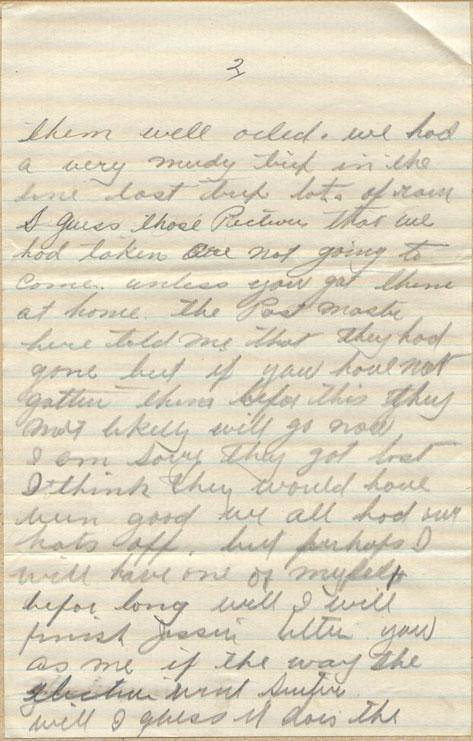 2
them well oiled. we had
a very mudy trip in the
line last trip lots of rain
I guess those Pictures that we
had taken are not going to
come. unless you got them
at home. the Post master
here told me that they had
gone but if you have not
gotten them befor this they
not likely will go now
I am sory they got lost
I think they would have
been good we all had our
hats off, but perhaps I
will have one of myself
befor long well I will
finish Jessie letter you
as me if the way the
election went
will I guess it does the